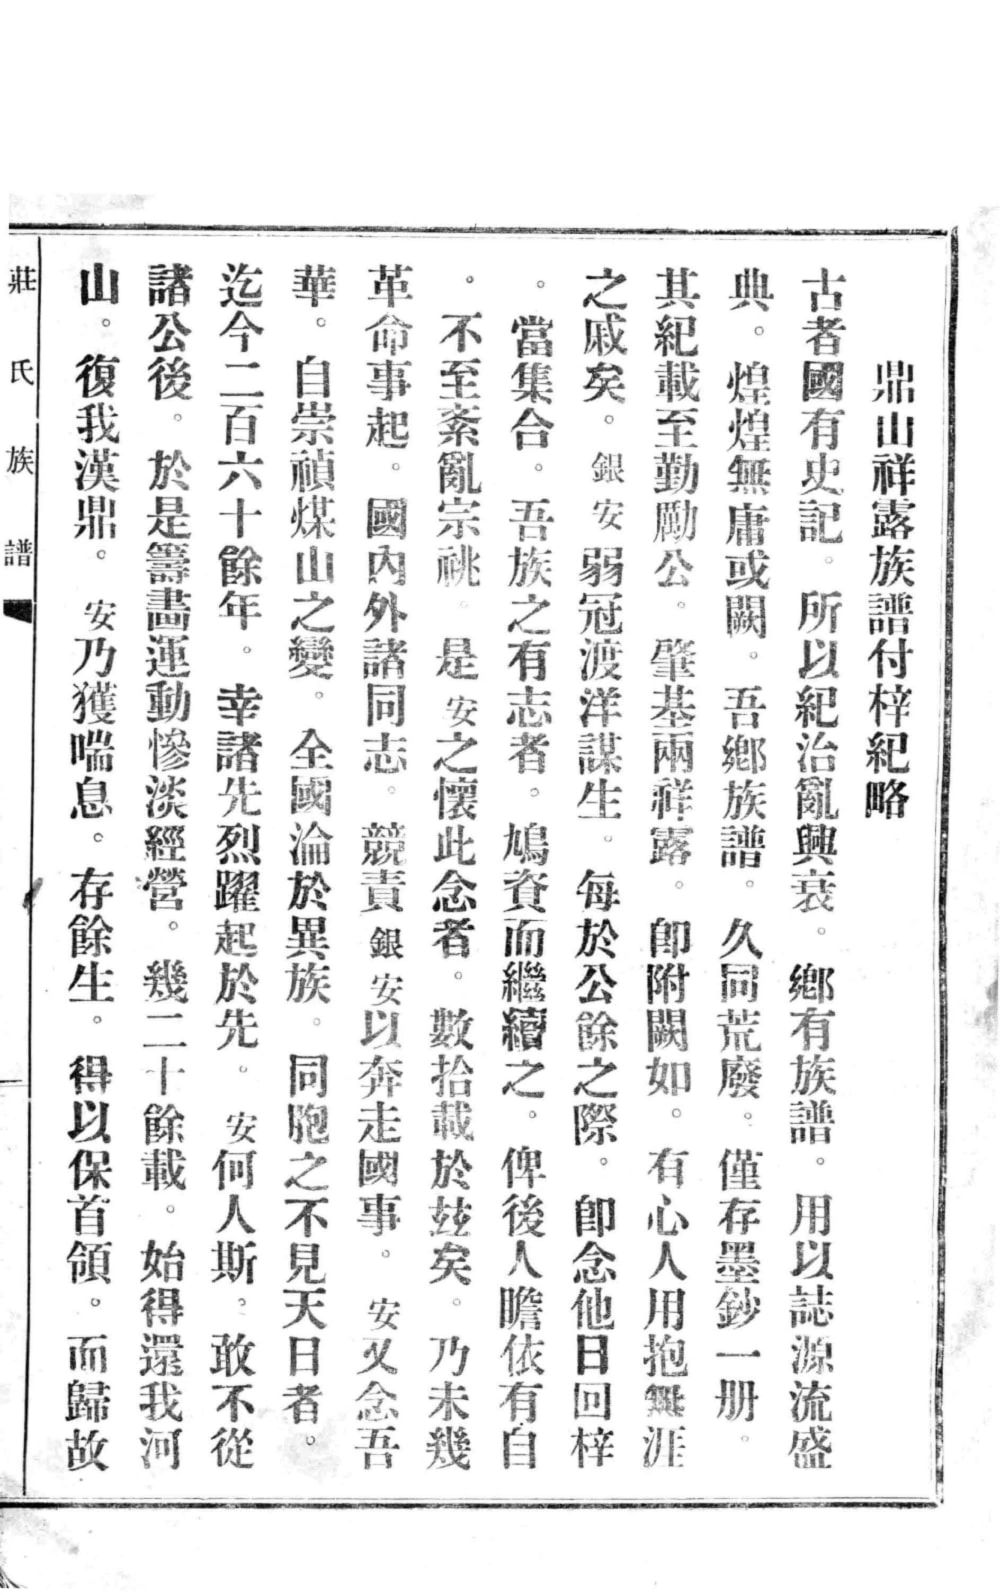 鼎山祥露族譜付梓紀略
古者國有史記。所以紀治亂興衰。鄉有族譜。用以誌源流盛
典。煌煌無庸或闕。吾鄉族譜。久同荒廢。僅存墨鈔一册。
其紀載至勤勵公。肇基兩祥露。卽附闕如。有心人用抱無涯
之戚矣。銀安弱冠渡洋謀生。每於公餘之際。卽念他日回梓
。當集合。吾族之有志者。鳩資而繼續之。俾後人瞻依有自
。不至紊亂宗祧。是安之懷此念者。數拾載於玆矣。乃未幾
革命事起。國內外諸同志。競責銀安以奔走國事。安又念吾
華。自崇禎煤山之變。全國淪於異族。同胞之不見天日者。
迄今二百六十餘年。幸諸先烈躍起於先。安何人斯。敢不從
諸公後。於是籌畫運動慘淡經營。幾二十餘載。始得還我河
山。復我漢鼎。安乃獲喘息。存餘生。得以保首領。而歸故
莊氏族譜